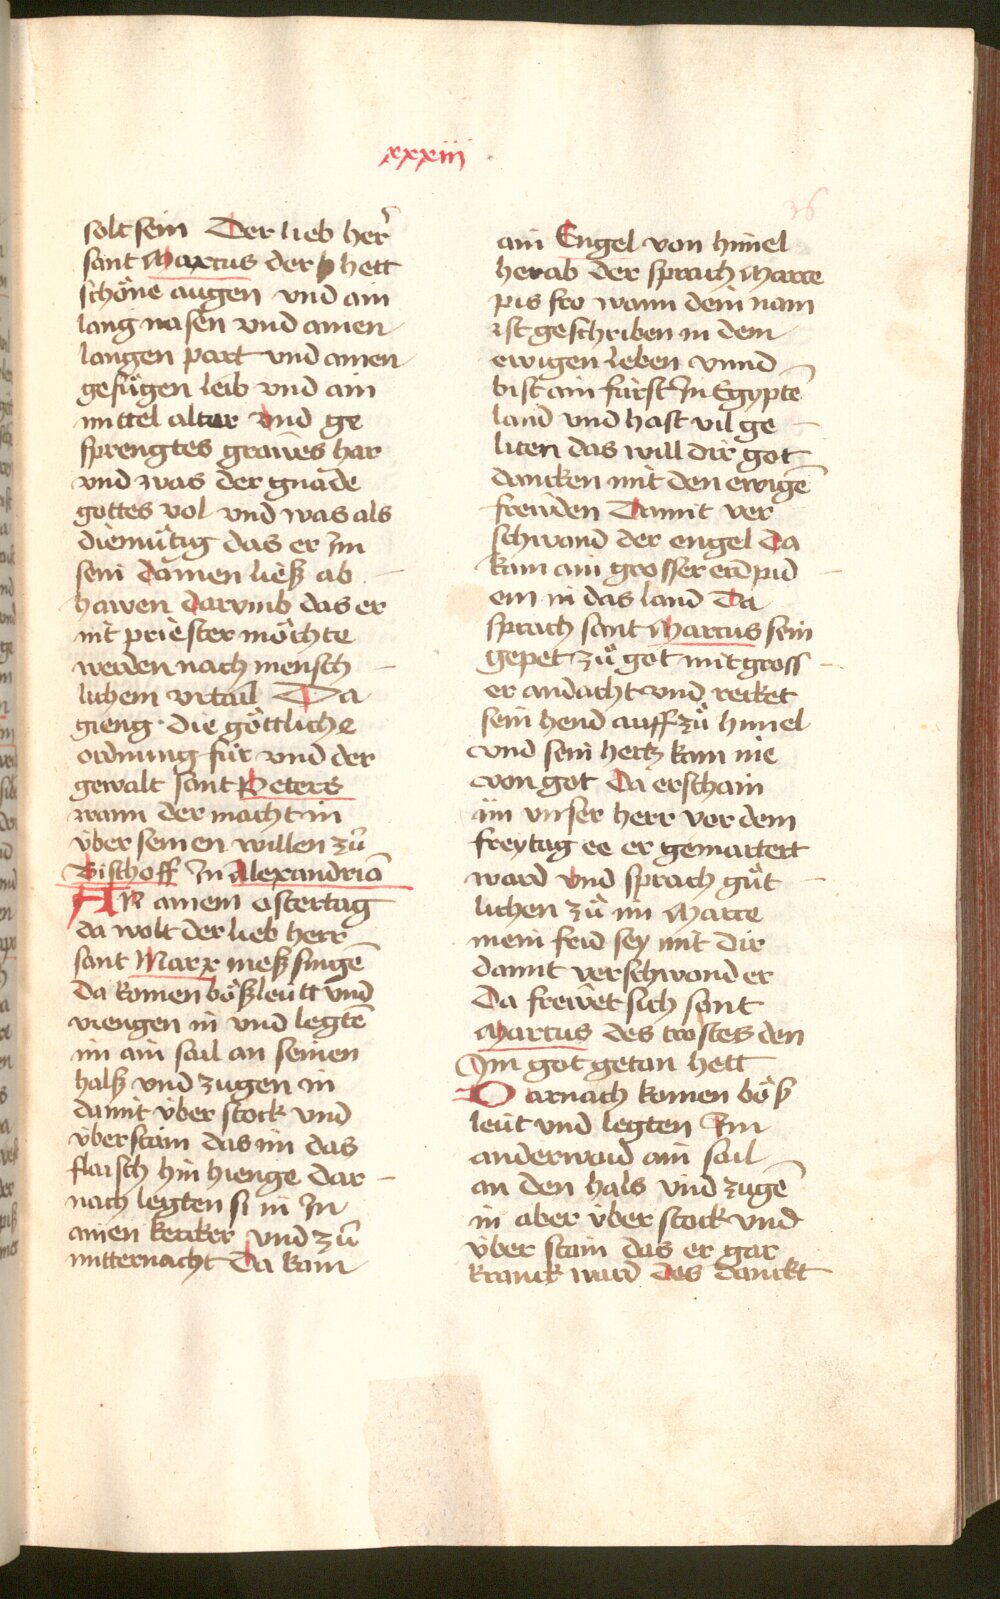 xxxiii
36
solt sein Der lieb her̄
sant Marcus der hett
schöne augen vnd ain
lang nasen vnd ainen
langen part vnd ainen
gefůgen leib vnd ain
mittel alter vnd ge
sprengtes grawes har
vnd was der gnade
gottes vol vnd was als
diemůtig das er Im
sein damen ließ ab
hawen darvmb das er
nit priester möchte
werden nach mensch
lichem vrtail Da
gieng die göttliche
ordnung für vnd der
gewalt sant Peters
wann der macht in
über seinen willen zů
Bischoff In Alexandria
An ainem ostertag
da wolt der lieb herr
sant Marx meß singē
da komen böß leütt vnd
viengen in vnd legtē
im ain sail an seinen
halß vnd zugen in
damit über stock vnd
über stain das im das
flaisch hin hienge dar
nach legten si in In
ainen kercker vnd zů
mitternacht Da kam
ain Engel von himel
herab der sprach Marce
pis fro wann dein nam
ist geschriben in dem
ewigen leben vnnd
bist ain fürst In Egyptē
land vnd hast vil ge
liten das will dir got
dancken mit den ewigē
freüden Damit ver
schwand der engel Da
kam ain grosser erdpid
em in das land Da
sprach sant Marcus sein
gepet zů got mit gross
er andacht vnd recket
sein hend auff zů himel
vnd sein hertz kam nie
von got Da erschain
im vnser herr vor dem
freytag ee er gemartert
ward vnd sprach gůt
lichen zů im Marce
mein frid sey mit dir
damit verschwand er
Da frewet sich sant
Marcus des trostes den
Im got getan hett
Darnach komen böß
leüt vnd legten Im
anderwaid ain sail
an den hals vnd zugē
in aber über stock vnd
über stain das er gar
kranck ward des danckt